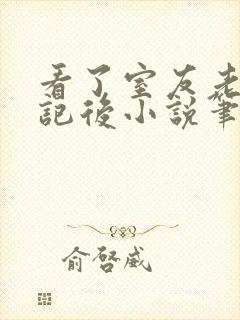 看了室友老
記後小說筆
俞啓威